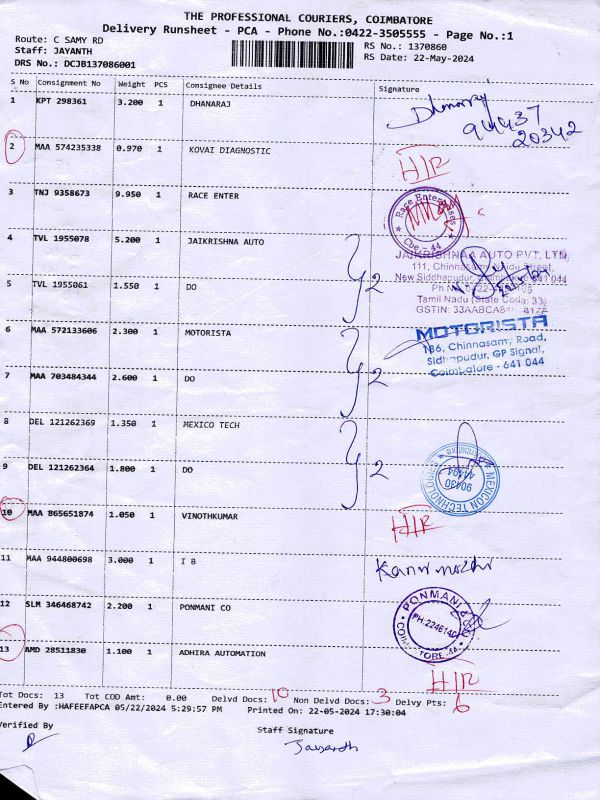 THE PROFESSIONAL COURIERS, COIMBATORE
Delivery Runsheet - PCA - Phone No.:0422-3505555 - Page No.:1
Route: C SAMY RD
Staff: JAYANTH
DRS No.: DCJB137086001
RS No.: 1370860
RS Date: 22-May-2024
S No Consignment No Weight PCS Consignee Details Signature
1 KPT 298361 3.200 1 DHANARAJ
2 MAA 574235338 0.970 1 KOVAI DIAGNOSTIC H/R
3 TNJ 9358673 9.950 1 RACE ENTER
Race Enterprises
Cbe-44
4 TVL 1955078 5.200 1 JAIKRISHNA AUTO
JAIKRISHNAA AUTO PVT. LTD,
111, Chinnasamy Naidu Street
New Siddhapudur, 641 044
5 TVL 1955061 1.550 1 DO 2
Tamil Nadu (State Code: 33)
GSTIN: 33AABCA8
6 MAA 572133606 2.300 1 MOTORISTA
MOTORISTA
186, Chinnasamy Road,
Sidhapudur, GP Signal,
Coimbatore - 641 044
7 MAA 703484344 2.600 1 DO 2
8 DEL 121262369 1.350 1 MEXICO TECH
9 DEL 121262364 1.800 1 DO 2
MEXICON TECHNOLOGIES
90430
41494
10 MAA 865651874 1.050 1 VINOTHKUMAR H/R
11 MAA 944800698 3.000 1 I B
12 SLM 346468742 2.200 1 PONMANI CO
PONMANI
13 AMD 28511830 1.100 1 ADHIRA AUTOMATION H/R
Tot Docs: 13 Tot COD Amt: 0.00 Delvd Docs: 10 Non Delvd Docs: 3 Delvy Pts: 6
Entered By :HAFEEFAPCA 05/22/2024 5:29:57 PM Printed On: 22-05-2024 17:30:04
Verified By
Staff Signature
Jayanth